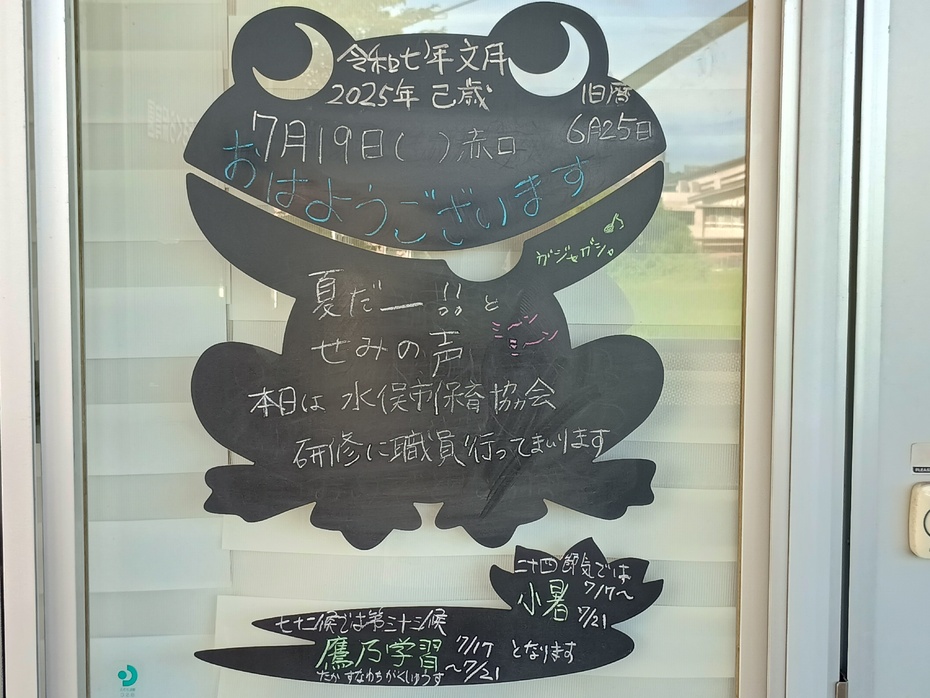 令和七年文月
2025年 己歳
旧暦
6月25日
7月19日( )赤口
おはようございます
ガジャガシ。
夏だー!!と
せみの声
ミーン
ミーン
本日は 水俣市保育協会
研修に職員行ってまいります
二十四節気では
小暑 7/17~
7/21
七十二候では第三十三候
鷹乃学習 7/17
~7/21 となります
たか すなわちがくしゅうす